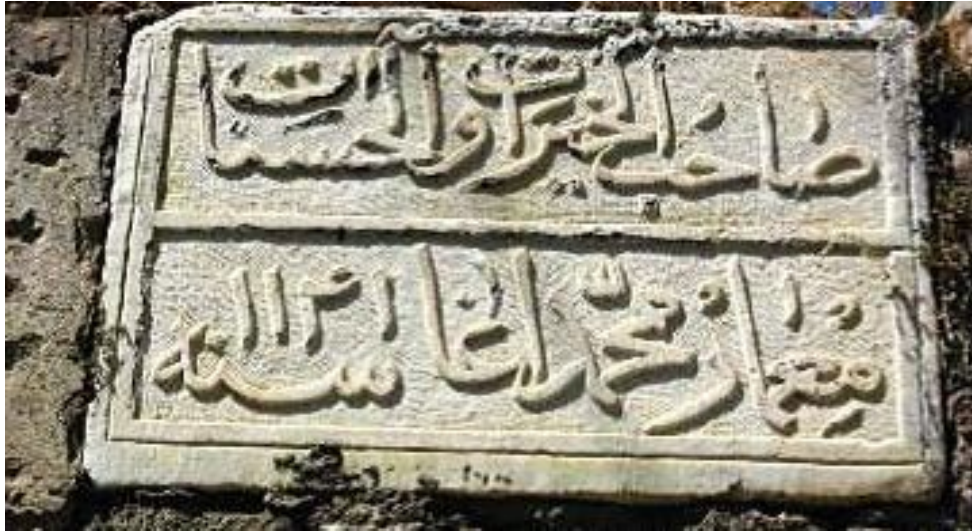 صاحب الخيرات والحسنات
معمار محمد اغا سنه ١١٣١